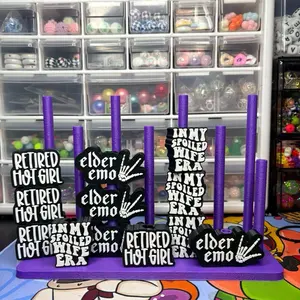 RETIRED
HOT GIRL
RETIRED
HOT GIRL
RETIRED
HOT GIRL
IN MY
SPOILED
WIFE
ERA
elder
emo
elder
emo
elder
emo
RETIRED
HOT GIRL
IN MY
SPOILED
WIFE
ERA
IN MY
SPOILED
WIFE
ERA
IN MY
SPOILED
WIFE
ERA
elder
emo